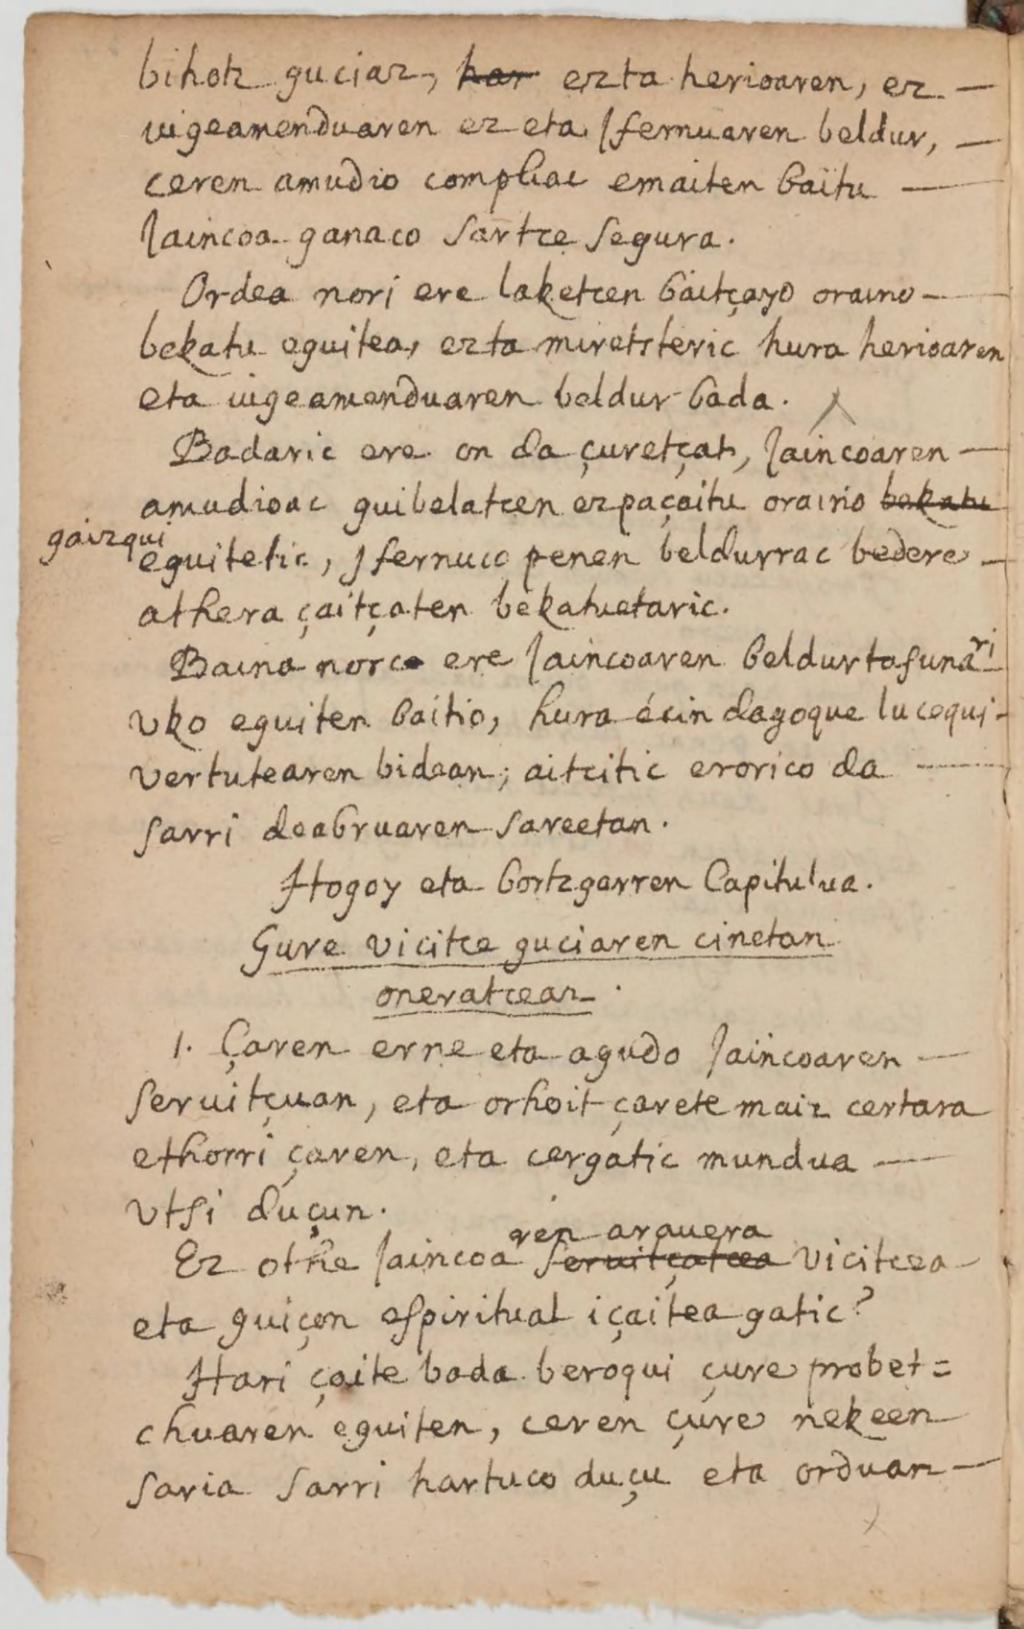 bihotz guciaz, har ezta herioaren, ez —
iuigeamenduaren ez eta Ifernuaren beldur, —
ceren amudio compliac emaiten baitu —
Jaincoa ganaco sartce segura.
Ordea nori ere laketcen baitçayo oraino —
bekatu eguitea, ezta miretsteric hura herioaren
eta iuigeamenduaren beldur bada.
Badaric ere on da çuretçat, Jaincoaren —
amudioac guibelatcen ezpaçaitu oraino bekatu
gaizqui eguitetic, Ifernuco penen beldurrac bedere —
athera çaitçaten bekatuetaric.
Baina norc ere Jaincoaren beldurtasunari
vko eguiten baitio, hura écin dagoque lucequi
vertutearen bidean; aitcitic eroricо da —
sarri deabruaren sareetan.
Hogoy eta bortzgarren Capitulua.
Gure vicitce guciaren cinetan
oneratceaz.
1. Çaren erne eta agudo Jaincoaren —
seruitçuan, eta orhoit çarete maiz certara
ethorri çaren, eta cergatic mundua —
vtsi duçun.
ren arauera
Ez othe Jaincoa seruitçatcea vicitcea
eta guiçon espiritual içaitea gatic?
Hari çaite bada beroqui çure probet=
chuaren eguiten, ceren çure nekeen
saria sarri hartuco duçu eta orduan —